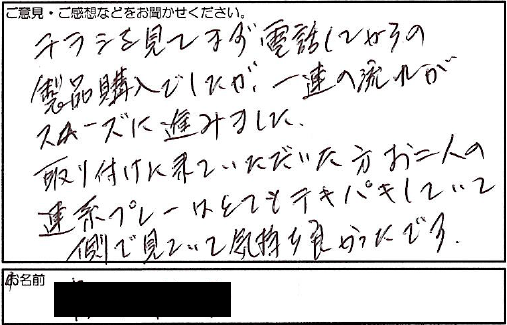 ご意見・ご感想などをお聞かせください。
チラシを見てまず電話してからの
製品購入でしたが、一連の流れが
スムーズに進みました。
取り付けに来ていただいた方お二人の
連系プレーはとてもテキパキしていて
側で見ていて気持ち良かったです。
お名前